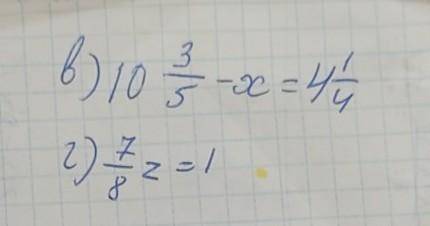 в) 10 3/5 - x = 4 1/4
г) 7/8 z = 1